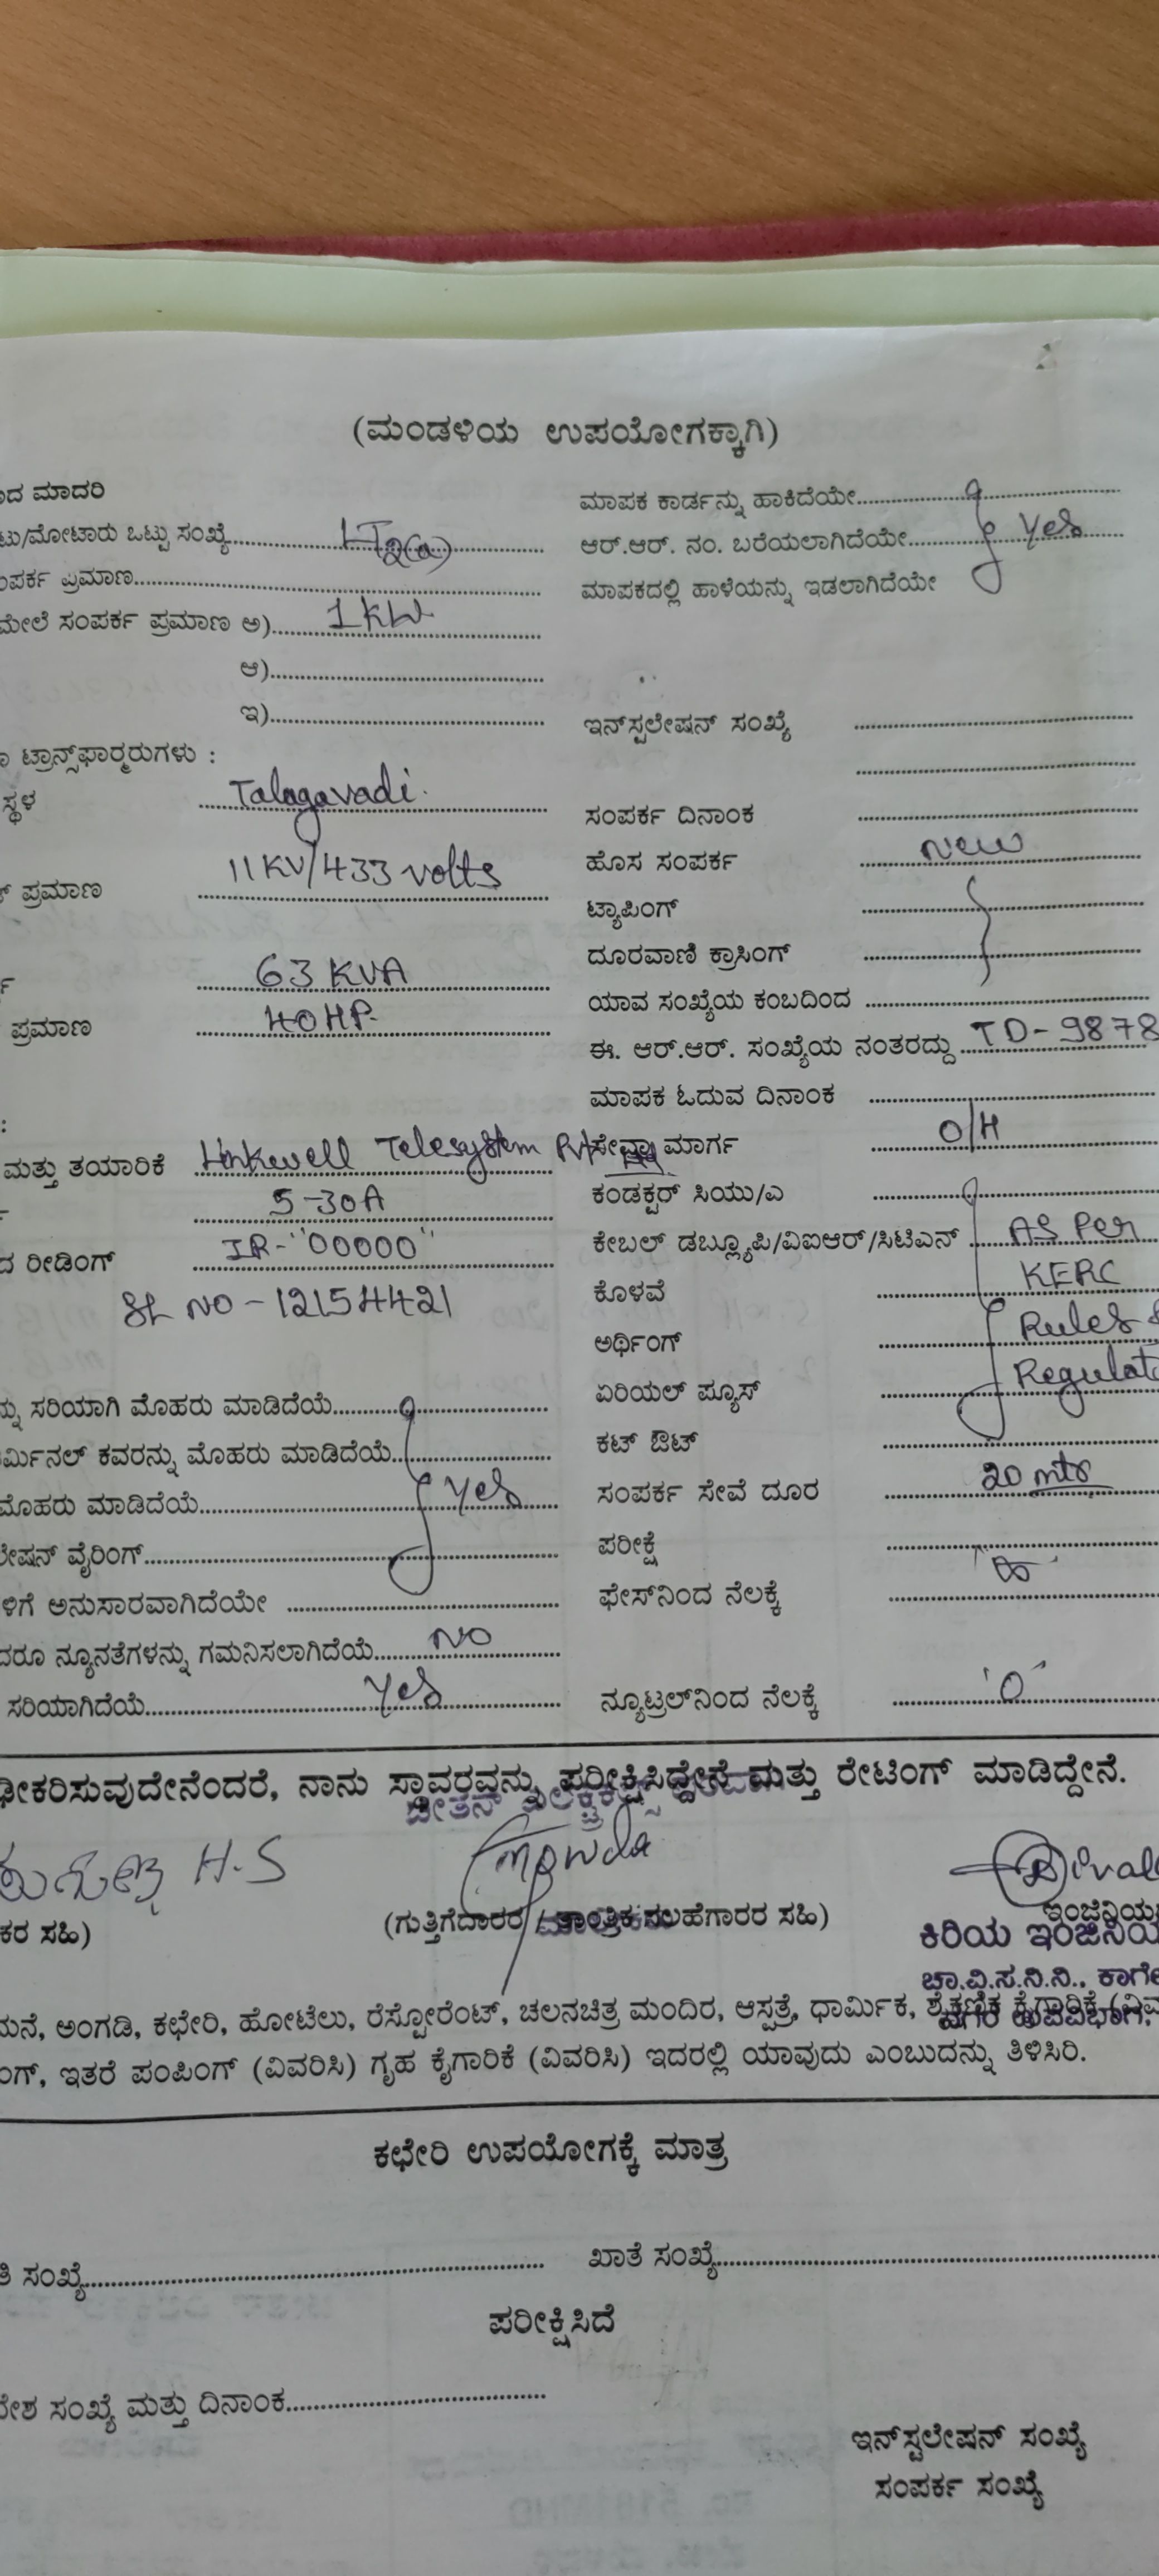 (ಮಂಡಳಿಯ ಉಪಯೋಗಕ್ಕಾಗಿ)
ಮಾದರಿ
ಮಾಪಕ ಕಾರ್ಡನ್ನು ಹಾಕಿದೆಯೇ
ಟು/ಮೋಟಾರು ಒಟ್ಟು ಸಂಖ್ಯೆ LT2(a)
ಆರ್.ಆರ್. ನಂ. ಬರೆಯಲಾಗಿದೆಯೇ Yes
ಪರ್ಕ ಪ್ರಮಾಣ
ಮಾಪಕದಲ್ಲಿ ಹಾಳೆಯನ್ನು ಇಡಲಾಗಿದೆಯೇ
ಮೇಲೆ ಸಂಪರ್ಕ ಪ್ರಮಾಣ ಅ) 1KW
ಆ)
ಇ)
ಇನ್‌ಸ್ಪಲೇಷನ್ ಸಂಖ್ಯೆ
ಟ್ರಾನ್ಸ್‌ಫಾರ್‍ಮರುಗಳು :
ಸ್ಥಳ Talagavadi.
ಸಂಪರ್ಕ ದಿನಾಂಕ
ಹೊಸ ಸಂಪರ್ಕ New
ಪ್ರಮಾಣ 11KV/433 volts
ಟ್ಯಾಪಿಂಗ್
ದೂರವಾಣಿ ಕ್ರಾಸಿಂಗ್
63 KVA
ಯಾವ ಸಂಖ್ಯೆಯ ಕಂಬದಿಂದ
ಪ್ರಮಾಣ 40HP
ಈ. ಆರ್.ಆರ್. ಸಂಖ್ಯೆಯ ನಂತರದ್ದು TD-9878
ಮಾಪಕ ಓದುವ ದಿನಾಂಕ
ಮತ್ತು ತಯಾರಿಕೆ Linkwell Telesystem
ಮಾರ್ಗ O/H
5-30A
ಕಂಡಕ್ಟರ್ ಸಿಯು/ಎ
ರೀಡಿಂಗ್ IR-"00000"
ಕೇಬಲ್ ಡಬ್ಲ್ಯೂಪಿ/ವಿಐಆರ್/ಸಿಟಿಎಸ್ AS Per
SL NO-12154421
ಕೊಳವೆ KERC
ಅರ್ಥಿಂಗ್ Rules &
ನ್ನು ಸರಿಯಾಗಿ ಮೊಹರು ಮಾಡಿದೆಯೆ
ಏರಿಯಲ್ ಪ್ಯೂಸ್ Regulat
ರ್ಮಿನಲ್ ಕವರನ್ನು ಮೊಹರು ಮಾಡಿದೆಯೆ
ಕಟ್ ಔಟ್
ಮೊಹರು ಮಾಡಿದೆಯೆ Yes
ಸಂಪರ್ಕ ಸೇವೆ ದೂರ 20 mtr
ಲೇಷನ್ ವೈರಿಂಗ್
ಪರೀಕ್ಷೆ
ಳಿಗೆ ಅನುಸಾರವಾಗಿದೆಯೇ
ಫೇಸ್‌ನಿಂದ ನೆಲಕ್ಕೆ
ದರೂ ನ್ಯೂನತೆಗಳನ್ನು ಗಮನಿಸಲಾಗಿದೆಯೆ NO
ಸರಿಯಾಗಿದೆಯೆ Yes
ನ್ಯೂಟ್ರಲ್‌ನಿಂದ ನೆಲಕ್ಕೆ 'O'
ಢೀಕರಿಸುವುದೇನೆಂದರೆ, ನಾನು ಸ್ಥಾವರವನ್ನು ಪರೀಕ್ಷಿಸಿದ್ದೇನೆ ಮತ್ತು ರೇಟಿಂಗ್ ಮಾಡಿದ್ದೇನೆ.
H.S
ಕರ ಸಹಿ)
(ಗುತ್ತಿಗೆದಾರರ / ತಾಂತ್ರಿಕ ಸಲಹೆಗಾರರ ಸಹಿ)
ಇಂಜಿನಿಯ
ಕಿರಿಯ ಇಂಜಿನಿಯ
ಚಾ.ವಿ.ಸ.ನಿ.ನಿ., ಕಾರ್ಗೆ
ಮನೆ, ಅಂಗಡಿ, ಕಛೇರಿ, ಹೋಟೆಲು, ರೆಸ್ಟೋರೆಂಟ್, ಚಲನಚಿತ್ರ ಮಂದಿರ, ಆಸ್ಪತ್ರೆ, ಧಾರ್ಮಿಕ, ಶೈಕ್ಷಣಿಕ ಕೈಗಾರಿಕೆ (ವಿವ
ಂಗ್, ಇತರೆ ಪಂಪಿಂಗ್ (ವಿವರಿಸಿ) ಗೃಹ ಕೈಗಾರಿಕೆ (ವಿವರಿಸಿ) ಇದರಲ್ಲಿ ಯಾವುದು ಎಂಬುದನ್ನು ತಿಳಿಸಿರಿ.
ಕಛೇರಿ ಉಪಯೋಗಕ್ಕೆ ಮಾತ್ರ
ಸಂಖ್ಯೆ
ಖಾತೆ ಸಂಖ್ಯೆ
ಪರೀಕ್ಷಿಸಿದೆ
ಸಂಖ್ಯೆ ಮತ್ತು ದಿನಾಂಕ
ಇನ್‌ಸ್ಟಲೇಷನ್ ಸಂಖ್ಯೆ
ಸಂಪರ್ಕ ಸಂಖ್ಯೆ